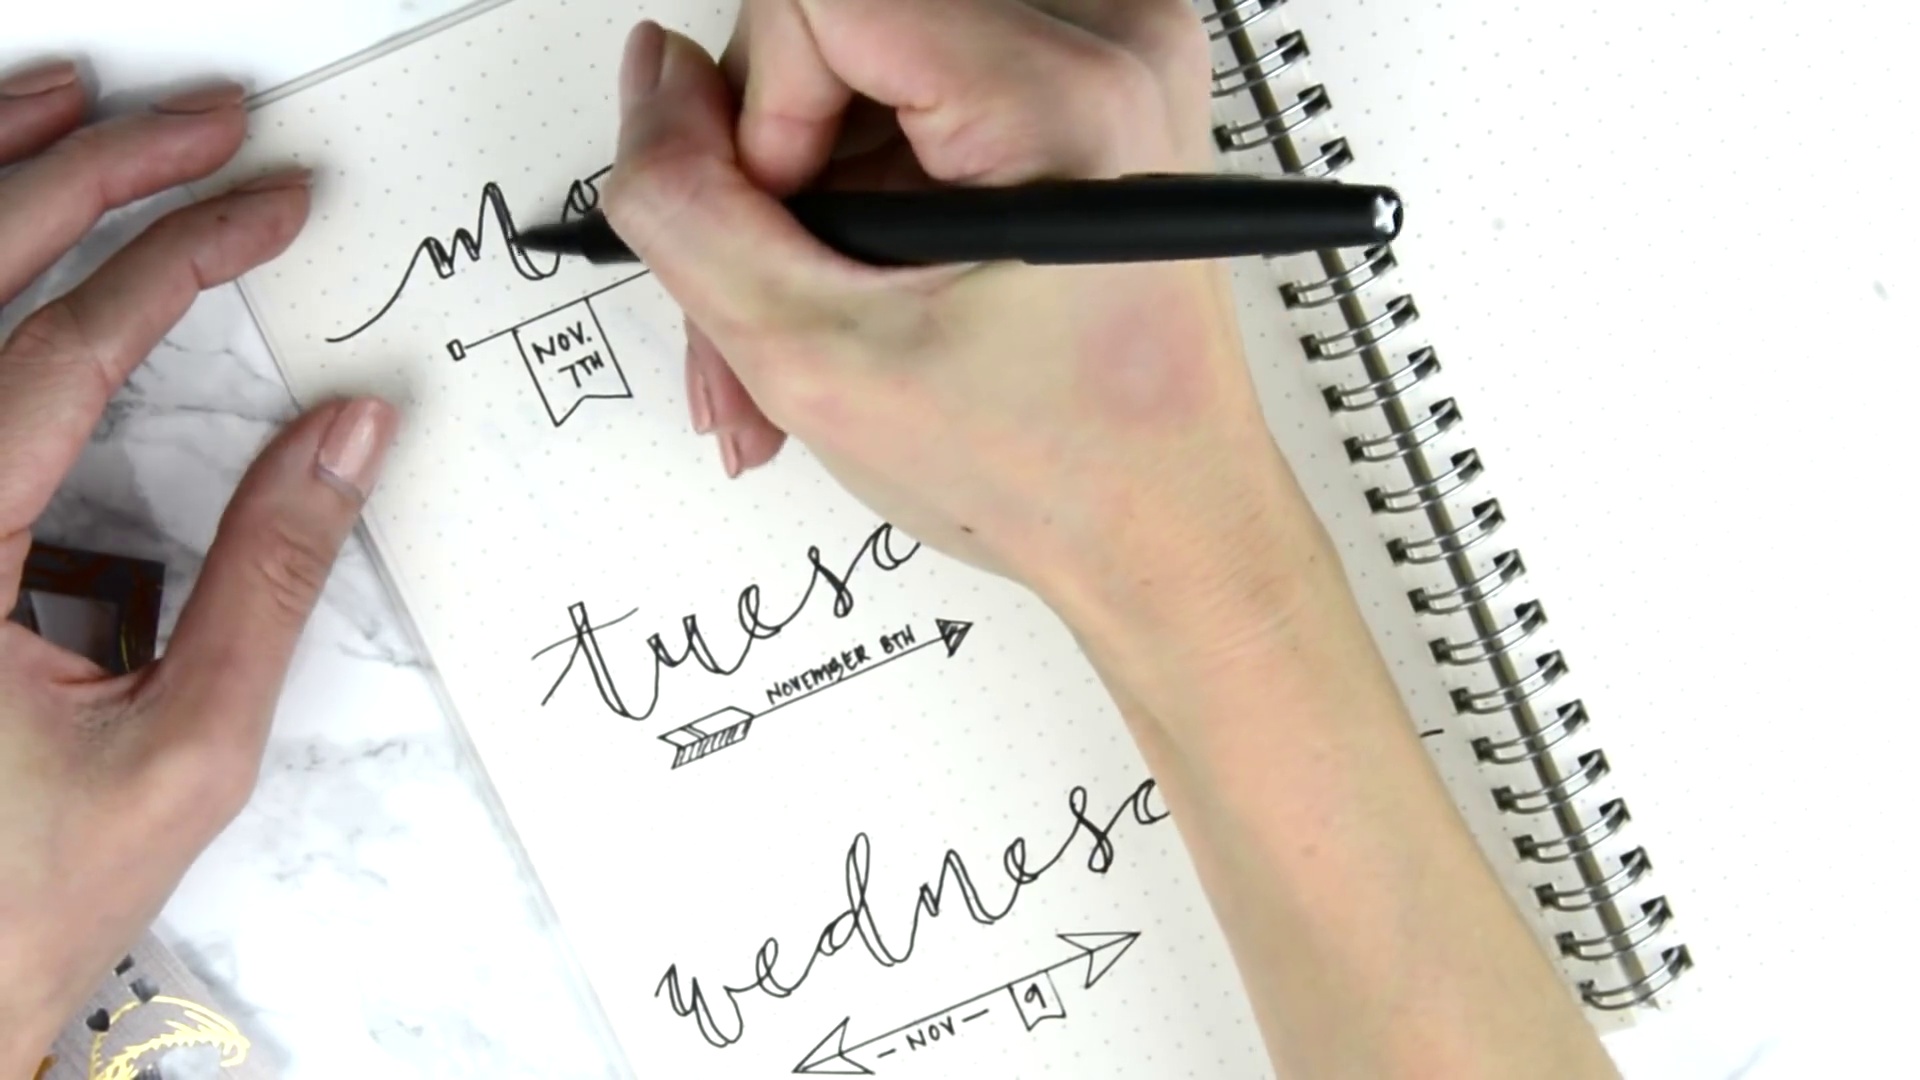 Mo
NOV.
7TH
tuesd
NOVEMBER 8TH
wednesd
- NOV - 9